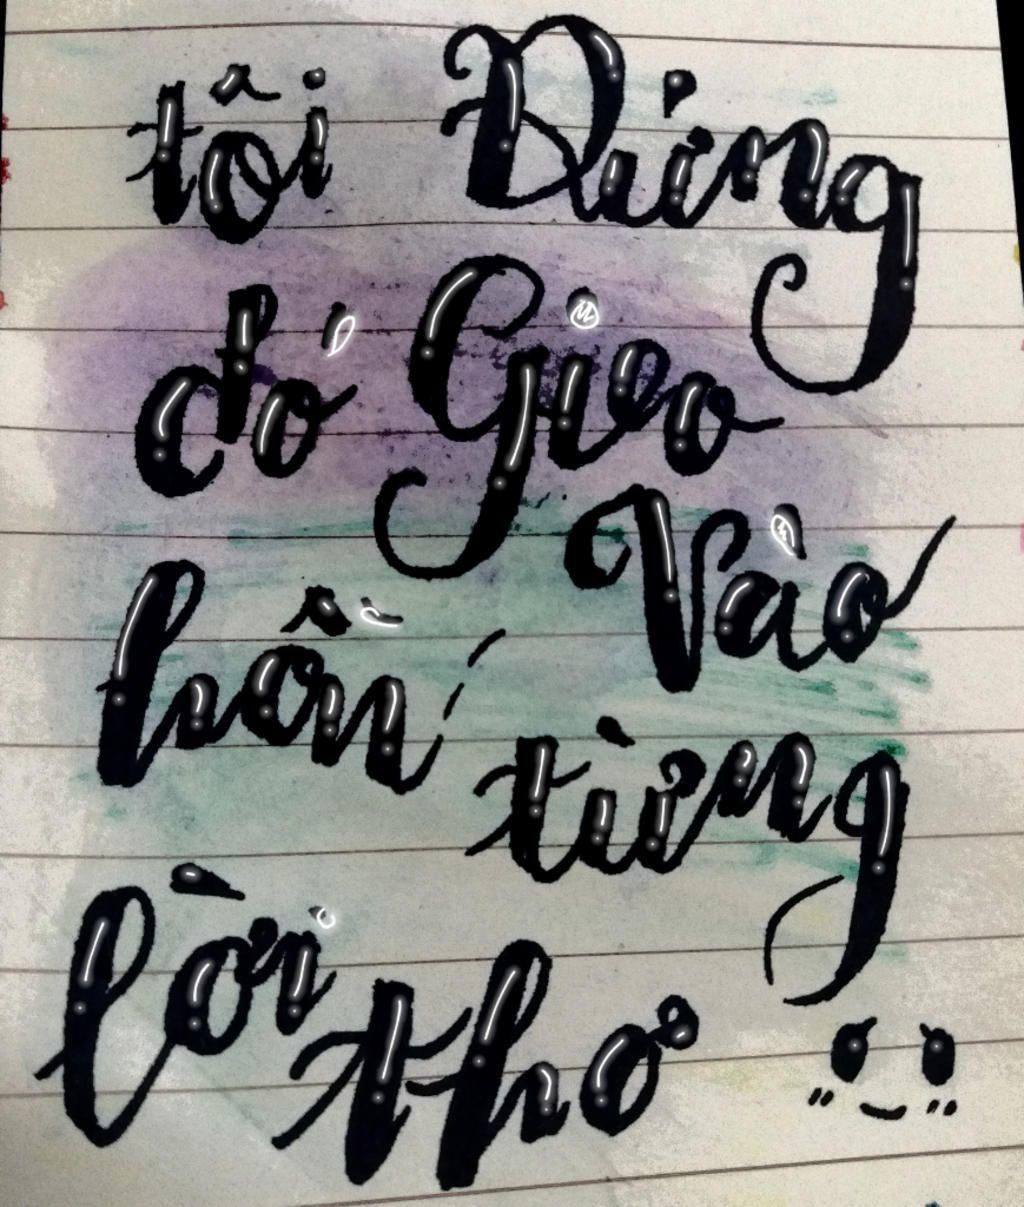 tôi Đứng
đó Gieo
Vào
hồn
từng
lời
thơ